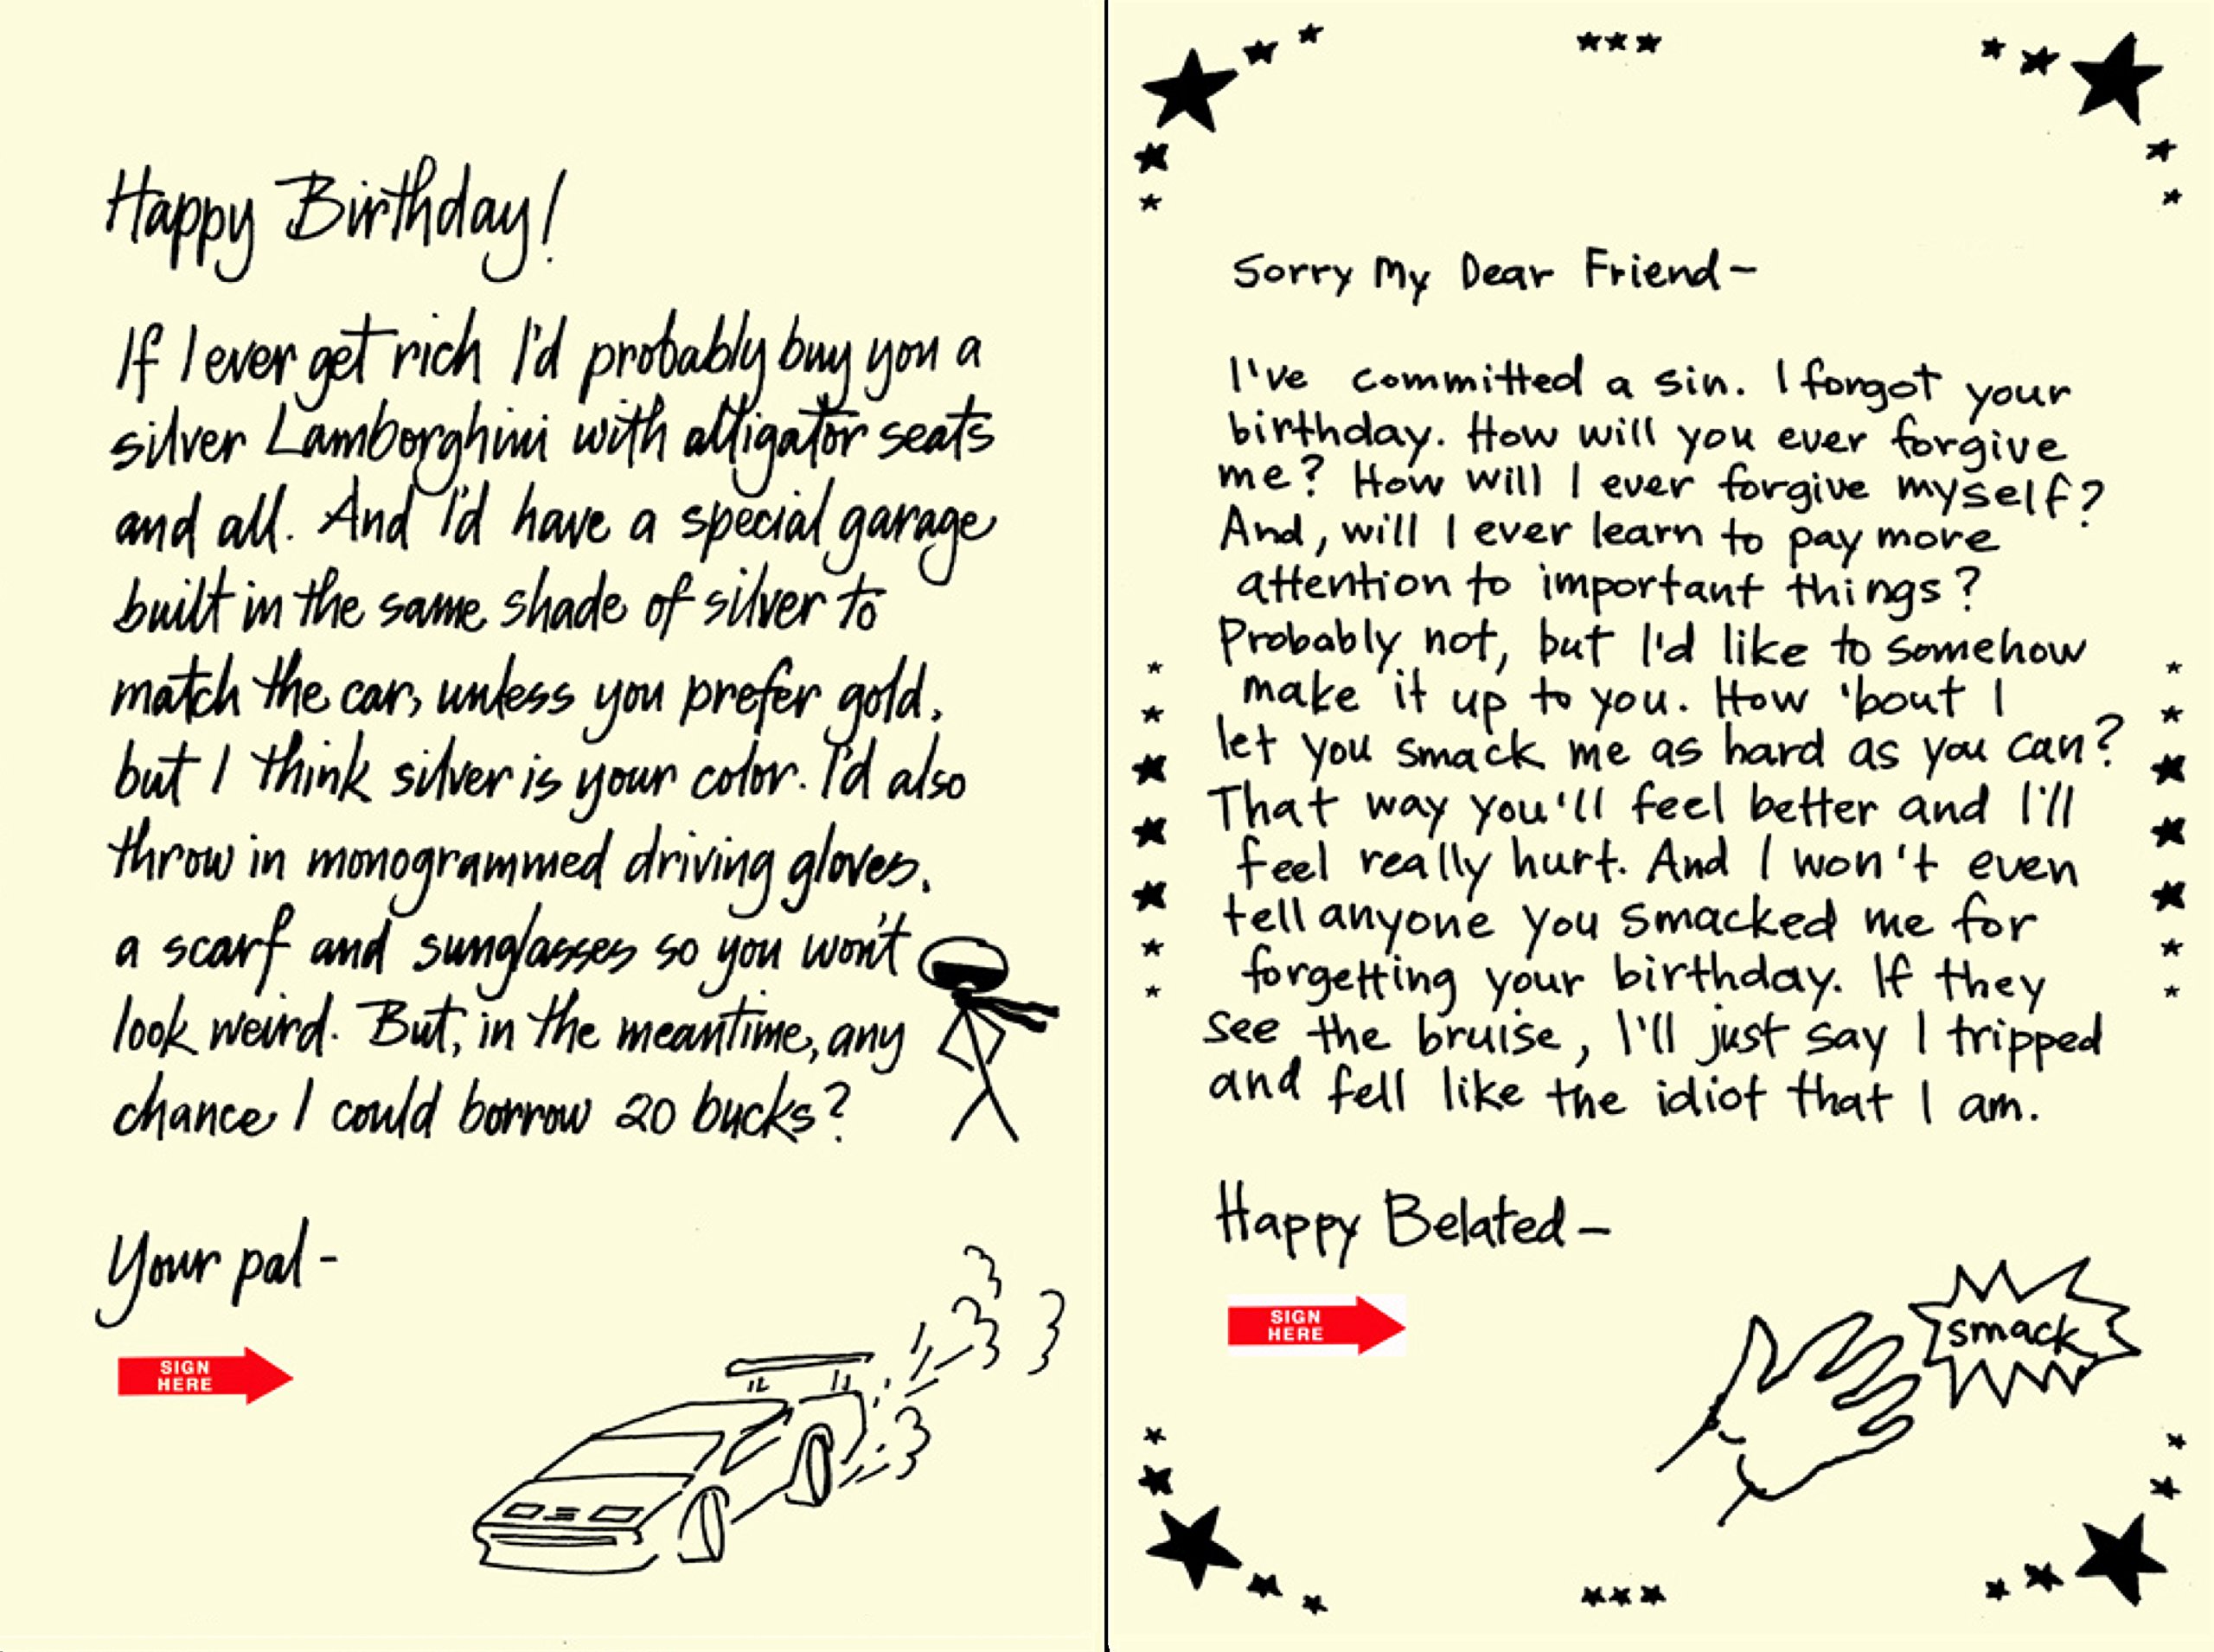 Happy Birthday!
If I ever get rich I'd probably buy you a
silver Lamborghini with alligator seats
and all. And I'd have a special garage
built in the same shade of silver to
match the car, unless you prefer gold,
but I think silver is your color. I'd also
throw in monogrammed driving gloves,
a scarf and sunglasses so you won't
look weird. But, in the meantime, any
chance I could borrow 20 bucks?
Your pal-
SIGN
HERE
Sorry My Dear Friend-
I've committed a sin. I forgot your
birthday. How will you ever forgive
me? How will I ever forgive myself?
And, will I ever learn to pay more
attention to important things?
Probably not, but I'd like to somehow
make it up to you. How 'bout I
let you smack me as hard as you can?
That way you'll feel better and I'll
feel really hurt. And I won't even
tell anyone you smacked me for
forgetting your birthday. If they
see the bruise, I'll just say I tripped
and fell like the idiot that I am.
Happy Belated-
SIGN
HERE
smack